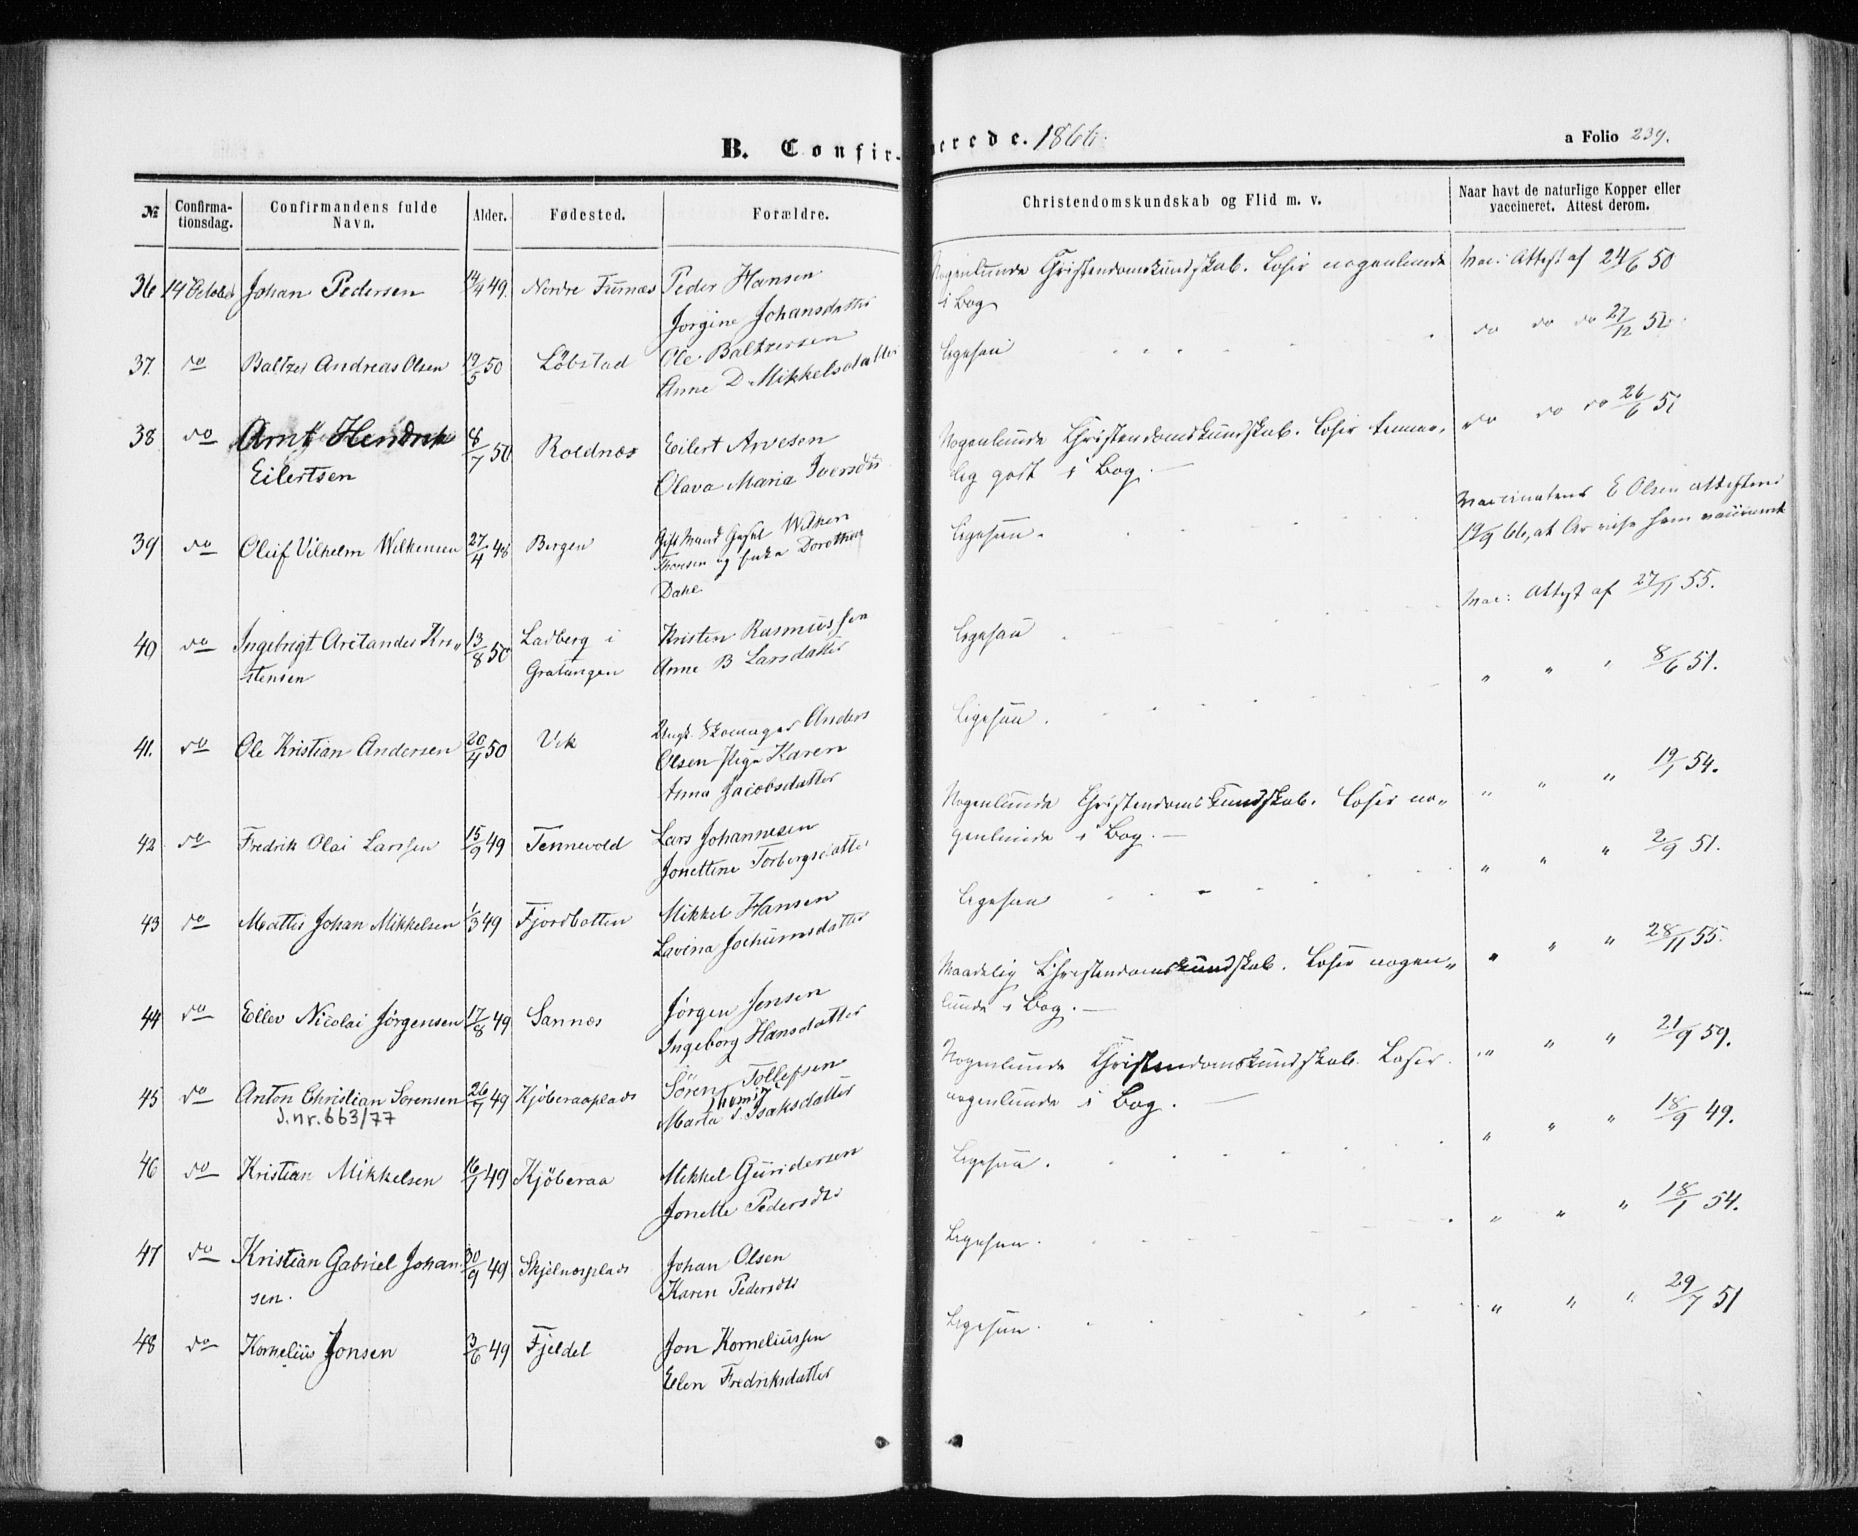 B. Confir-
merede. 1866.
a Folio 239.
№ Confirma-tionsdag. Confirmandens fulde Navn. Alder. Fødested. Forældre. Christendomskundskab og Flid m. v. Naar havt de naturlige Kopper eller vaccineret. Attest derom.
36 14 October Johan Pedersen 14/4 49. Nordre Furnæs Peder Hansen Nogenlunde Christendomskundskab. Læser nogenlunde Vac: Attest af 24/6 50
Jørgine Johansdatter i Bog
37. do Baltzer Andreas Olsen 12/5 50 Løbstad Ole Baltzersen Ligesaa do do do 27/12 52
Anne D Mikkelsdatter
38 do Arnt Hendrik 8/7 50 Roldnæs Eilert Arvesen Nogenlunde Christendomskundskab. Læser temme- do do do 26/6 51
Eilertsen Olava Maria Iversdtr lig godt i Bog.
39 do Oluf Vilhelm Wilkensen 27/4 48 Bergen Gift Mand Wilken Ligesaa. Vaccinatens E Olsen attesterer
Thoresen og Dorothea 66, at Ar vise som vaccineret
Dahl
40 do Ingebrigt Aretander Kri- 13/8 50 Ladberg i Kristen Rasmussen Ligesaa Vac: Attest af 27/11 55.
stensen Gratangen Anne B Larsdatter
41. do Ole Kristian Andersen 20/4 50 Vik Ungk. Skomager Anders Ligesaa. " " " 8/6 51.
Olsen Pige Karen
Anna Jacobsdatter
42 do Fredrik Olai Larssen 15/9 49 Tennevold Lars Johannesen Nogenlunde Christendomskundskab. Læser no- " " " 19/1 54.
Jonettine Torbergsdatter genlunde i Bog.
43 do Mattis Johan Mikkelsen 1/3 49 Fjordbotten Mikkel Hansen Ligesaa " " " 2/9 51.
Lavina Jochumsdatter
44 do Ellev Nicolai Jørgensen 17/8 49 Sannæs Jørgen Jensen Maadelig Christendomskundskab. Læser nogen- " " " 28/11 55.
Ingeborg Hansdatter lunde i Bog.
45 do Anton Christian Sørensen 26/7 49 Kjøberaaplads Sören Tollefsen Nogenlunde Christendomskundskab. Læser " " " 21/9 59.
J.nr. 663/77 Marta J. Isaksdatter nogenlunde i Bog.
46 do Kristian Mikkelsen 16/1 49 Kjøberaa Mikkel Gundersen Ligesaa. " " " 18/9 49.
Jonette Pedersdtr
47 do Kristian Gabriel Johan- 30/9 49 Skjelnæsplads Johan Olsen Ligesaa. " " " 18/1 54.
sen. Karen Pedersdtr
48 do Kornelius Jonsen 3/6 49 Fjeldet Jon Korneliussen Ligesaa. " " " 29/7 51
Elen Fredriksdatter